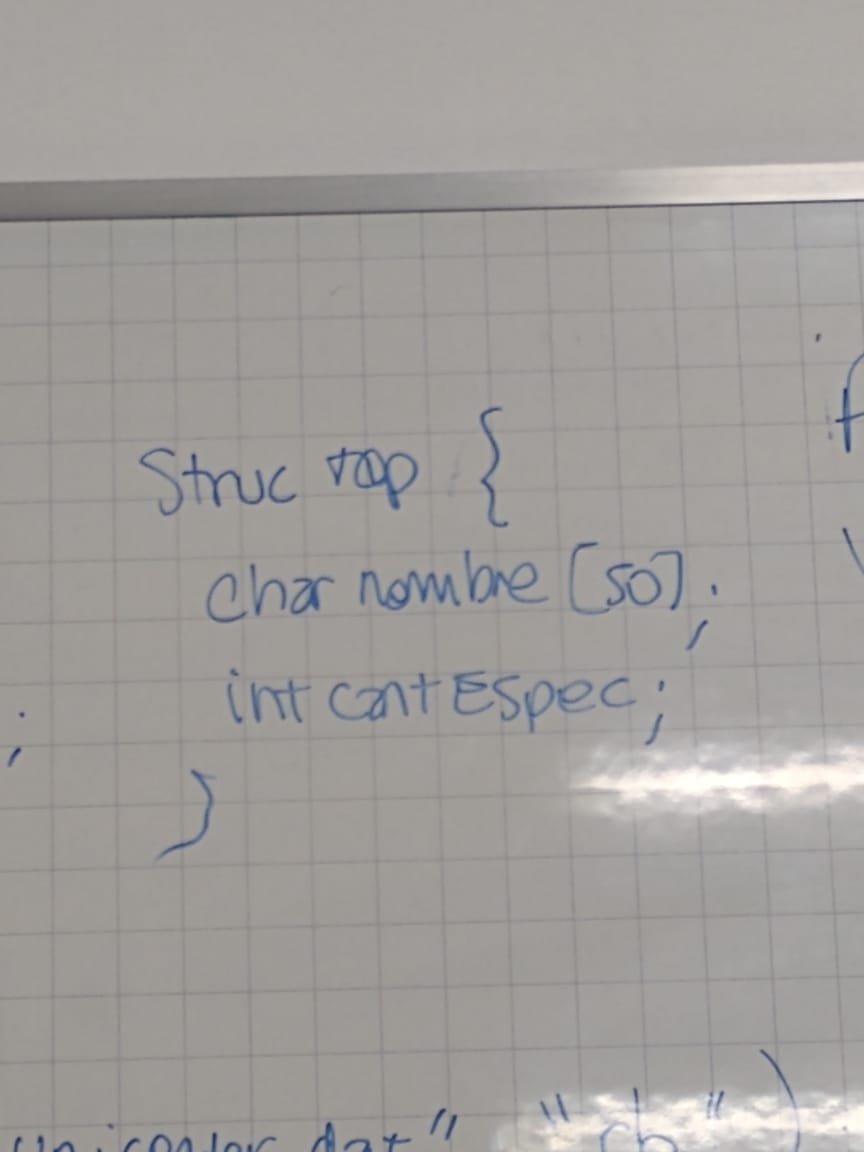 Struc top {
char nombre [50];
int cantEspec;
;
}
dat" "rb")